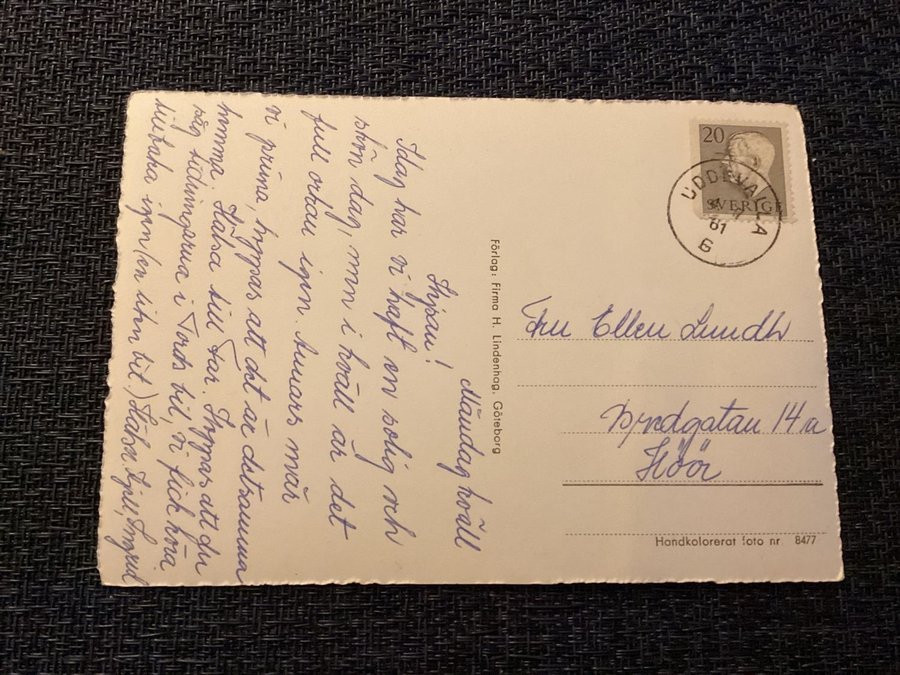 Måndag kväll
Hejsan!
Idag har vi haft en solig och
skön dag, men i kväll är det
full orkan igen. Annars mår
vi prima, hoppas att det är detsamma
hemma. Hälsa till Far. Hoppas att du
såg tidningarna i Tords bil, vi fick köra
tillbaka igen (en liten bit.) Kjell, Ingrid
Förlag: Firma H. Lindenhag, Göteborg
20
SVERIGE
UDDEVALLA
61
6
Fru Ellen Lundh
14 a
Höör
Handkolorerat foto nr. 8477